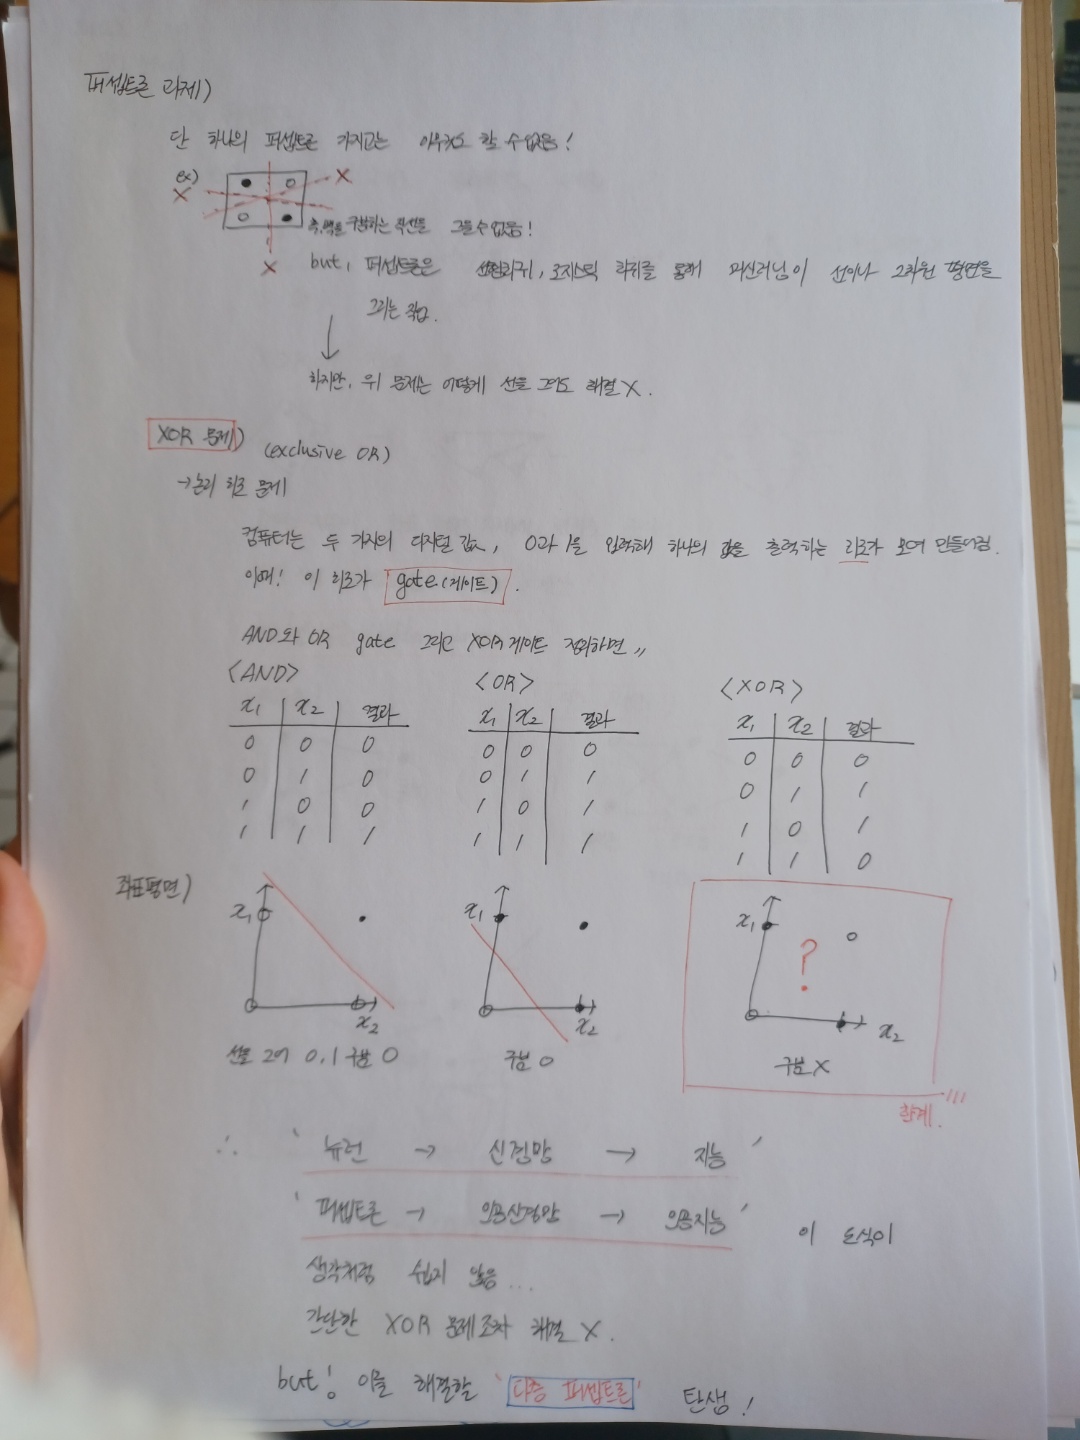 퍼셉트론 과제)
단 하나의 퍼셉트론 가지고는 아무것도 할 수 없음!
ex)
X
X
X
즉, 백을 구분하는 직선을 그을 수 없음!
but, 퍼셉트론은 선형회귀, 로지스틱 회귀를 통해 머신러닝이 선이나 2차원 평면을
그리는 작업.
하지만, 위 문제는 어떻게 선을 그어도 해결 X.
XOR 문제) (exclusive OR)
→ 논리 회로 문제
컴퓨터는 두 가지의 디지털 값, 0과 1을 입력해 하나의 값을 출력하는 회로가 모여 만들어짐.
이때! 이 회로가 gate(게이트).
AND와 OR gate 그리고 XOR 게이트 정리하면,,
<AND> <OR> <XOR>
x₁ x₂ 결과 x₁ x₂ 결과 x₁ x₂ 결과
0 0 0 0 0 0 0 0 0
0 1 0 0 1 1 0 1 1
1 0 0 1 0 1 1 0 1
1 1 1 1 1 1 1 1 0
좌표평면)
x₁ x₁ x₁ ?
x₂ x₂ x₂
선을 그어 0, 1 구분 O 구분 O 구분 X
한계.
∴ ' 뉴런 → 신경망 → 지능 '
' 퍼셉트론 → 인공신경망 → 인공지능 ' 이 도식이
생각처럼 쉽지 않음...
간단한 XOR 문제조차 해결 X.
but! 이를 해결할 '다층 퍼셉트론' 탄생!